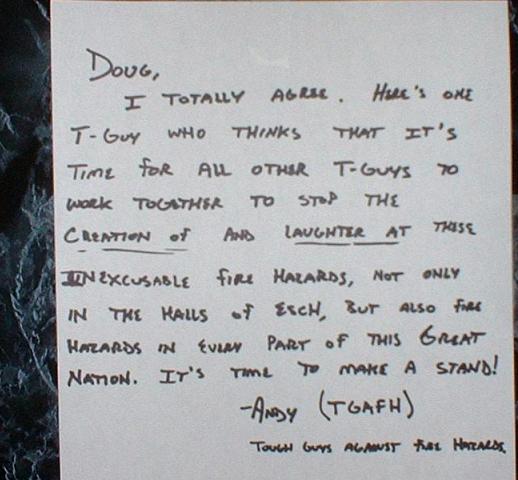 DOUG,
I TOTALLY AGREE. HERE'S ONE
T-GUY WHO THINKS THAT IT'S
TIME FOR ALL OTHER T-GUYS TO
WORK TOGETHER TO STOP THE
CREATION OF AND LAUGHTER AT THESE
INEXCUSABLE FIRE HAZARDS, NOT ONLY
IN THE HALLS OF ESCH, BUT ALSO FIRE
HAZARDS IN EVERY PART OF THIS GREAT
NATION. IT'S TIME TO MAKE A STAND!
-ANDY (TGAFH)
TOUGH GUYS AGAINST FIRE HAZARDS